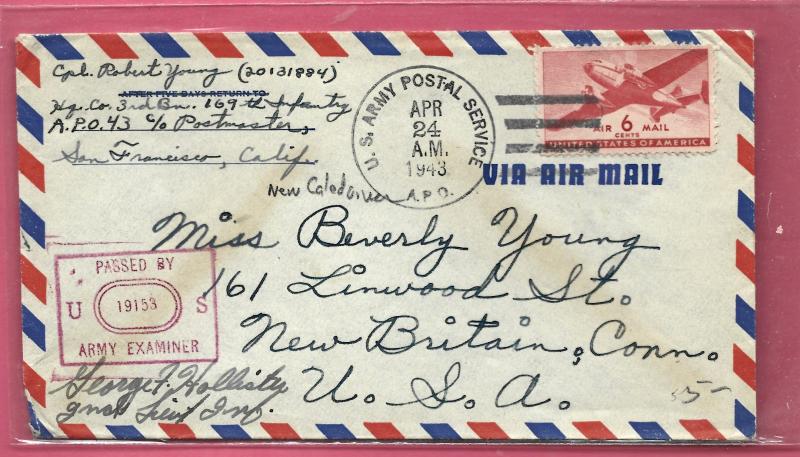 Cpl. Robert Young (20131884)
AFTER FIVE DAYS RETURN TO
Hq. Co. 3rd Bn. 169th Infantry
A.P.O. 43 c/o Postmaster,
San Francisco, Calif.
U.S. ARMY POSTAL SERVICE
APR
24
A.M.
1943
A.P.O.
AIR 6 MAIL
CENTS
UNITED STATES OF AMERICA
VIA AIR MAIL
New Caledonia
Miss Beverly Young
161 Linwood St.
New Britain, Conn.
U. S. A.
PASSED BY
U 19153 S
ARMY EXAMINER
George F. Hollister
2nd Lieut Inf.